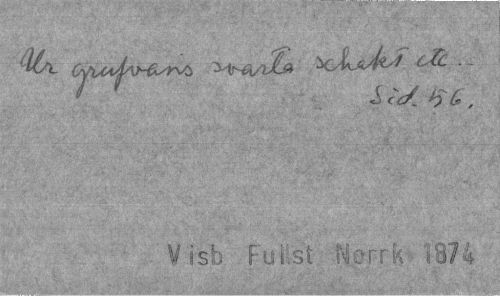 Ur grufvans svarta schakt etc..
Sid. 56.
Visb Fullst Norrk 1874